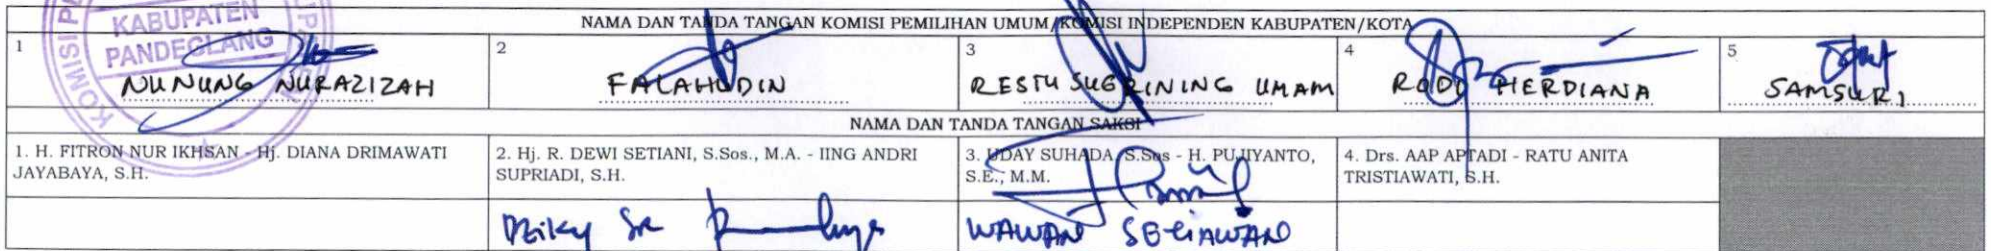 KOMISI P
KABUPATEN
PANDEGLANG
NAMA DAN TANDA TANGAN KOMISI PEMILIHAN UMUM/KOMISI INDEPENDEN KABUPATEN/KOTA
1 2 3 4 5
NUNUNG NURAZIZAH FALAHUDIN RESTU SUGRINING UMAM RODI HERDIANA SAMSURI
NAMA DAN TANDA TANGAN SAKSI
1. H. FITRON NUR IKHSAN - Hj. DIANA DRIMAWATI
JAYABAYA, S.H.
2. Hj. R. DEWI SETIANI, S.Sos., M.A. - IING ANDRI
SUPRIADI, S.H.
3. UDAY SUHADA, S.Sos - H. PUJIYANTO,
S.E., M.M.
4. Drs. AAP APTADI - RATU ANITA
TRISTIAWATI, S.H.
WAWAN SETIAWAN